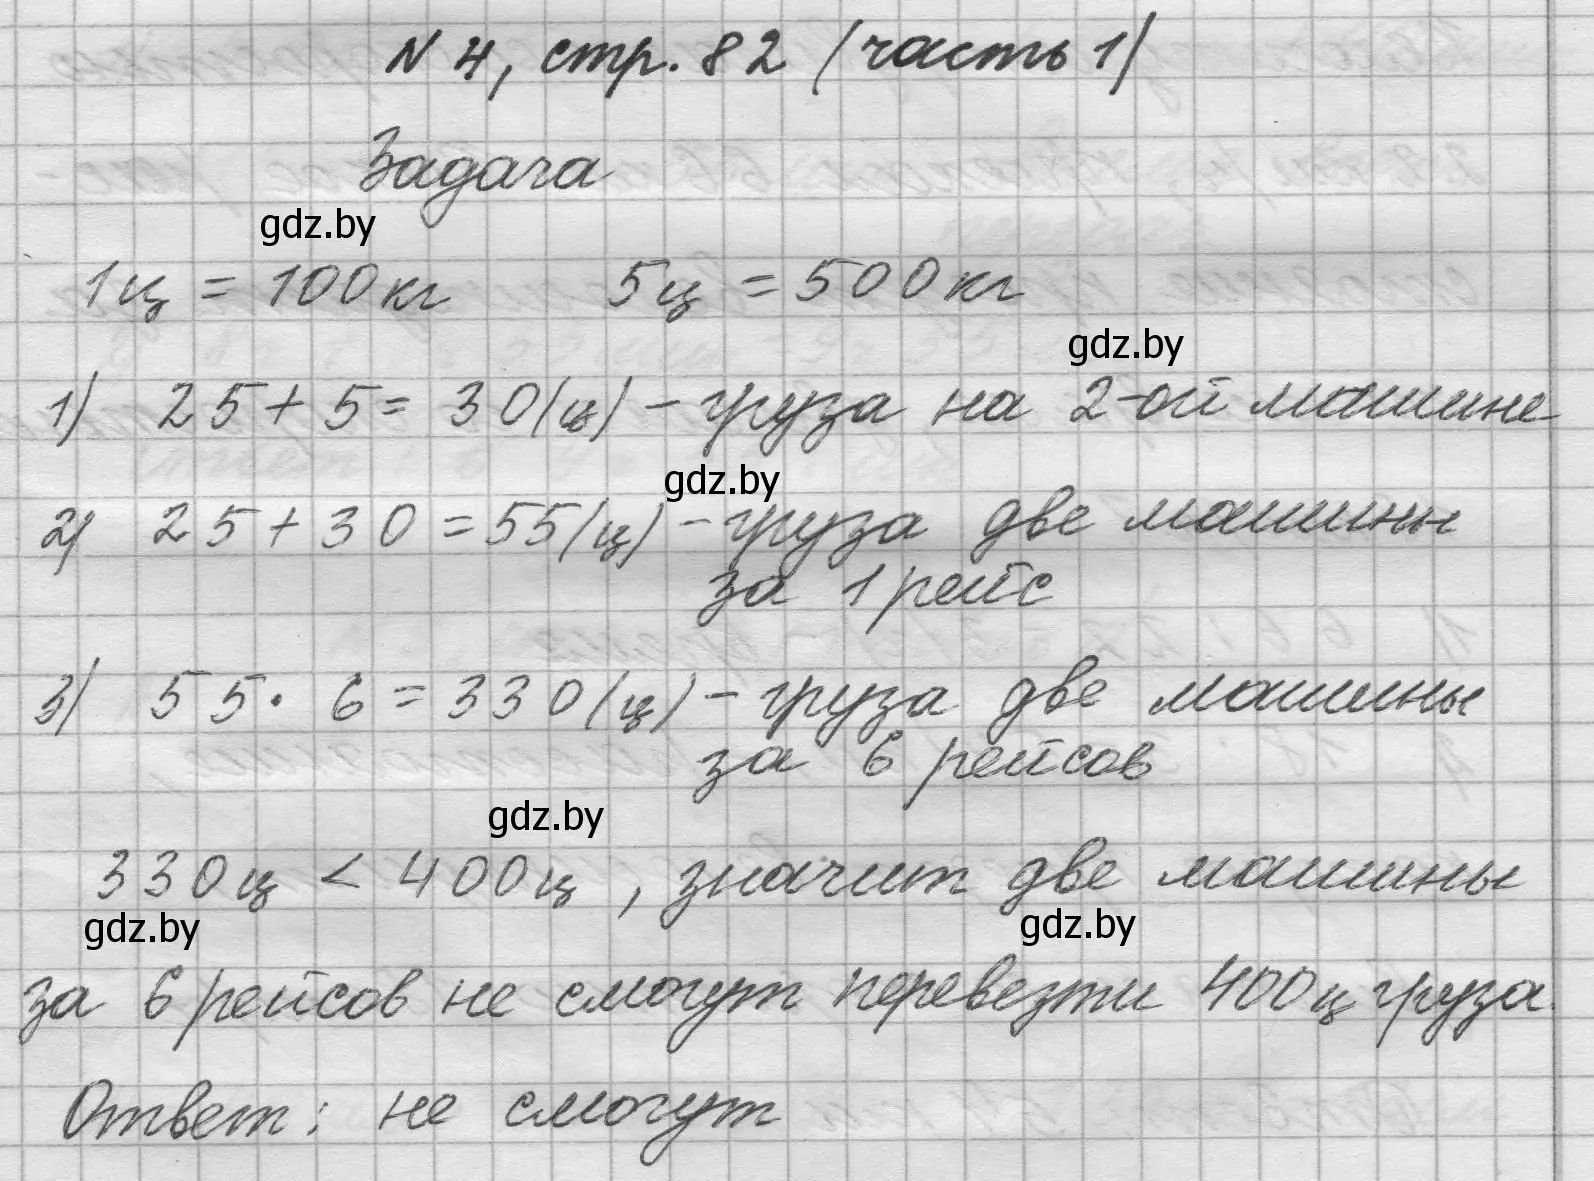 N 4, стр. 82 (часть 1)
Задача
gdz.by
1ц = 100кг 5ц = 500кг
gdz.by
1) 25 + 5 = 30(ц) - груза на 2-ой машине
gdz.by
2) 25 + 30 = 55(ц) - груза две машины
за 1 рейс
3) 55 · 6 = 330(ц) - груза две машины
за 6 рейсов
gdz.by
330ц < 400ц, значит две машины
gdz.by gdz.by
за 6 рейсов не смогут перевезти 400ц груза.
Ответ: не смогут